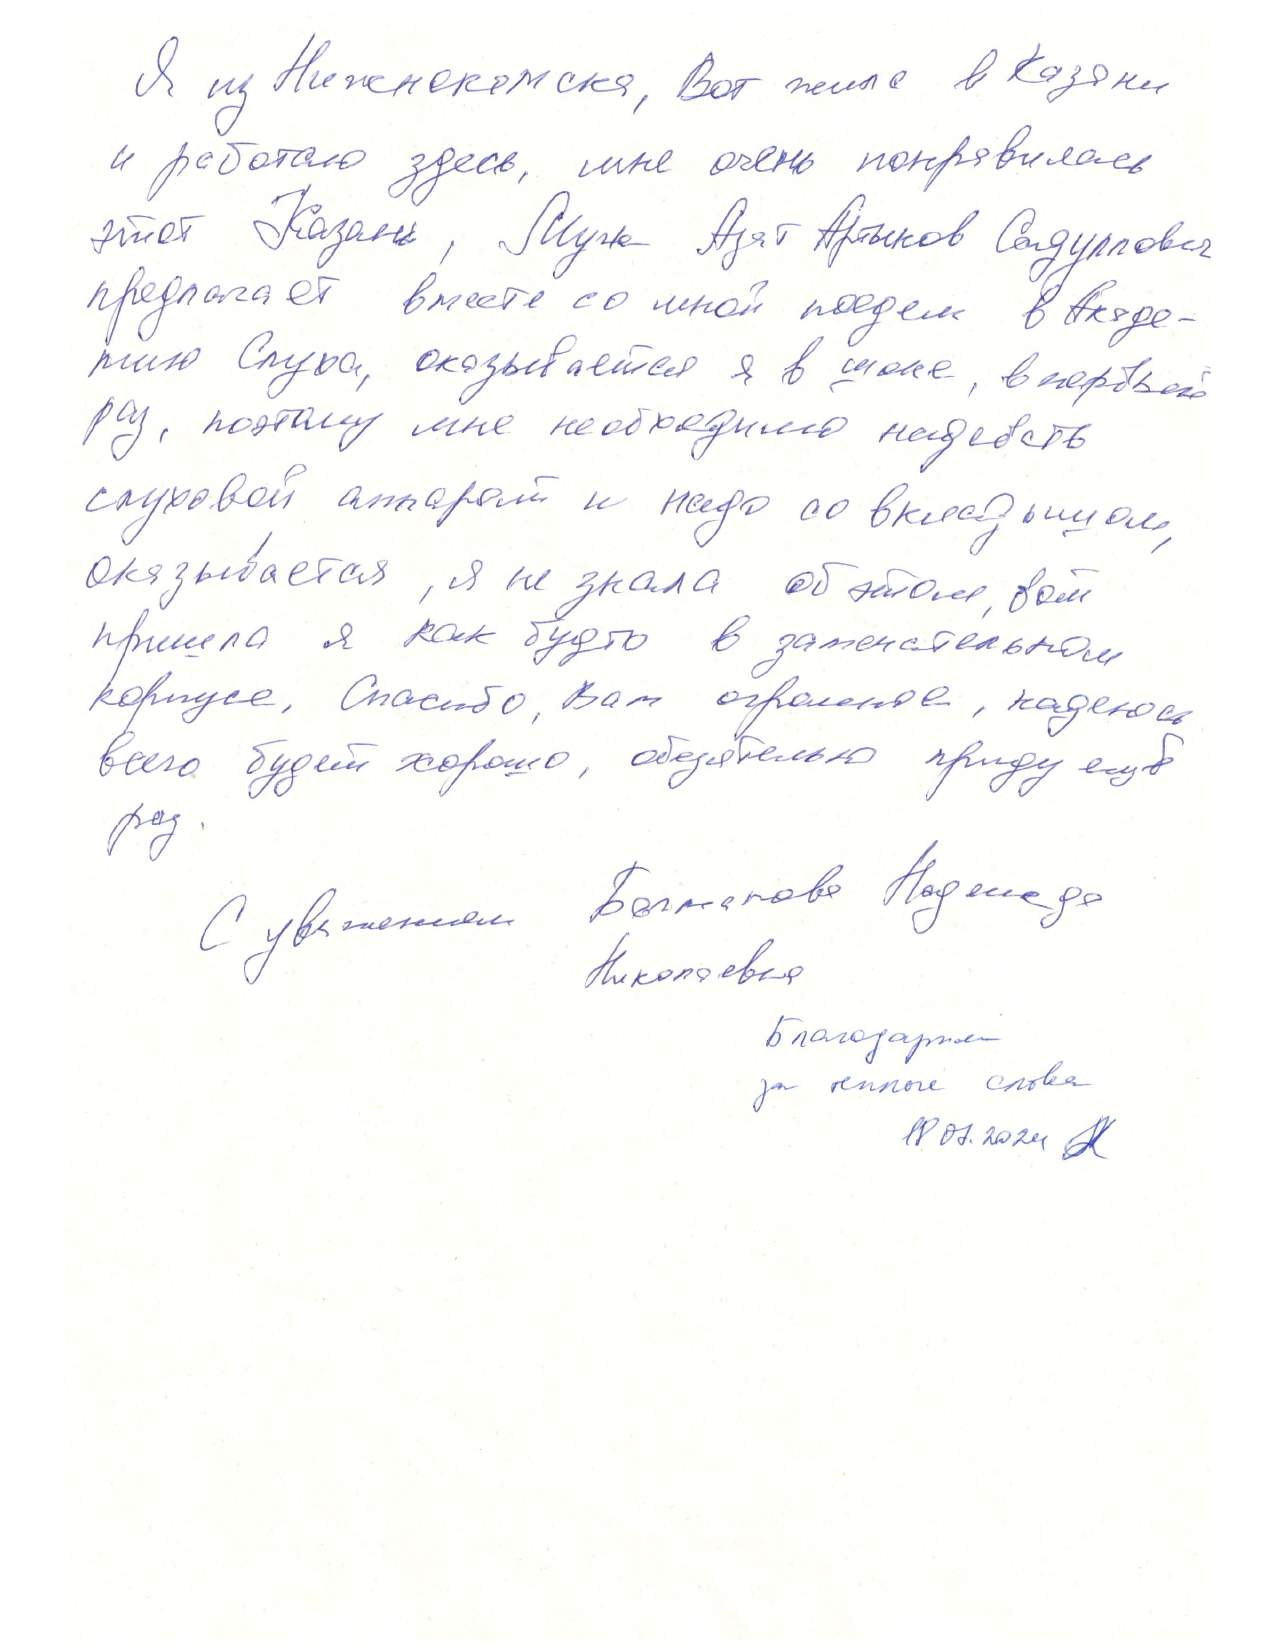 Я из Нижнекамска, Вот жила в Казани
и работаю здесь, мне очень понравилась
этот Казань, Муж Азят Артыков Садуллович
предлагает вместе со мной поедем в Акаде-
мию Слуха, оказывается я в шоке, впервый
раз, поэтому мне необходимо надевать
слуховой аппарат и надо со вкладышом,
оказывается, я не знала об этом, вот
пришла я как будто в замечательном
корпусе. Спасибо, Вам огромное, надеюсь
всего будет хорошо, обязательно приду ещё
раз.
С уважением Надежда
Николаевна
Благодарим
за теплые слова
18.07.2024